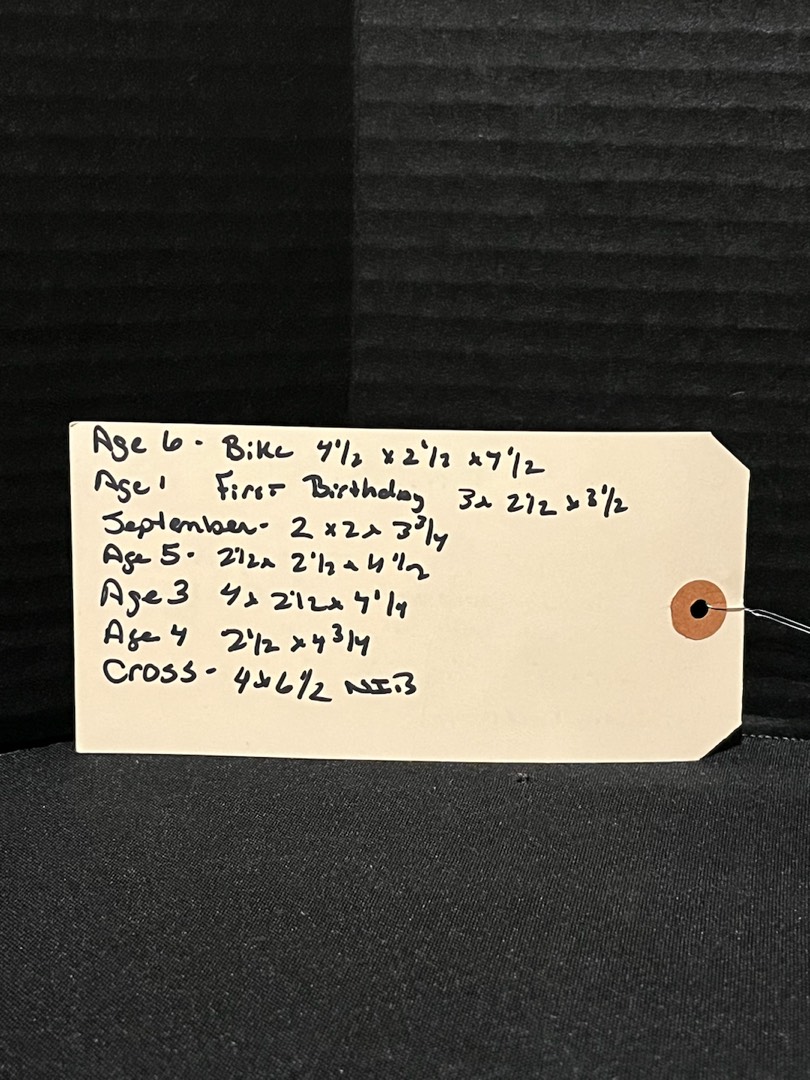 Age 6 - Bike 4 1/2 x 2 1/2 x 4 1/2
Age 1 First Birthday 3 x 2 1/2 x 3 1/2
September - 2 x 2 x 3 3/4
Age 5 - 2 1/2 x 2 1/2 x 4 1/2
Age 3 4 x 2 1/2 x 4 1/4
Age 4 2 1/2 x 4 3/4
Cross - 4 x 6 1/2 NIB